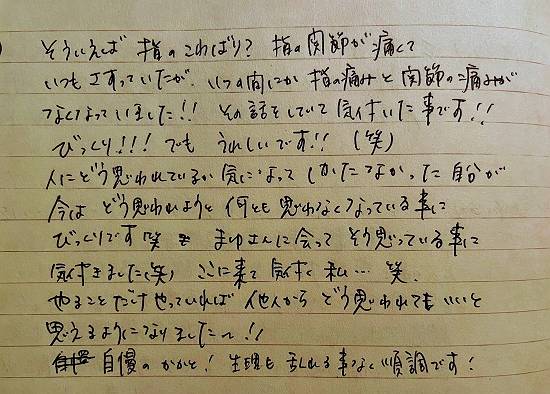 そういえば 指のこわばり? 指の関節が痛くて
いつもさすっていたが、いつの間にか 指の痛みと関節の痛みが
なくなっていました!! その話をしていて気付いた事です!!
びっくり!!! でも うれしいです!! (笑)
人にどう思われているか気になって しかたなかった自分が
今は どう思われようと 何とも思わなくなっている事に
びっくりです 笑 まゆさんに会って そう思っている事に
気付きました(笑) ここに来て 気付く 私… 笑
やることだけやっていれば 他人から どう思われてもいいと
思えるようになりました〜!!
自慢のかかと! 生理も乱れる事なく順調です!